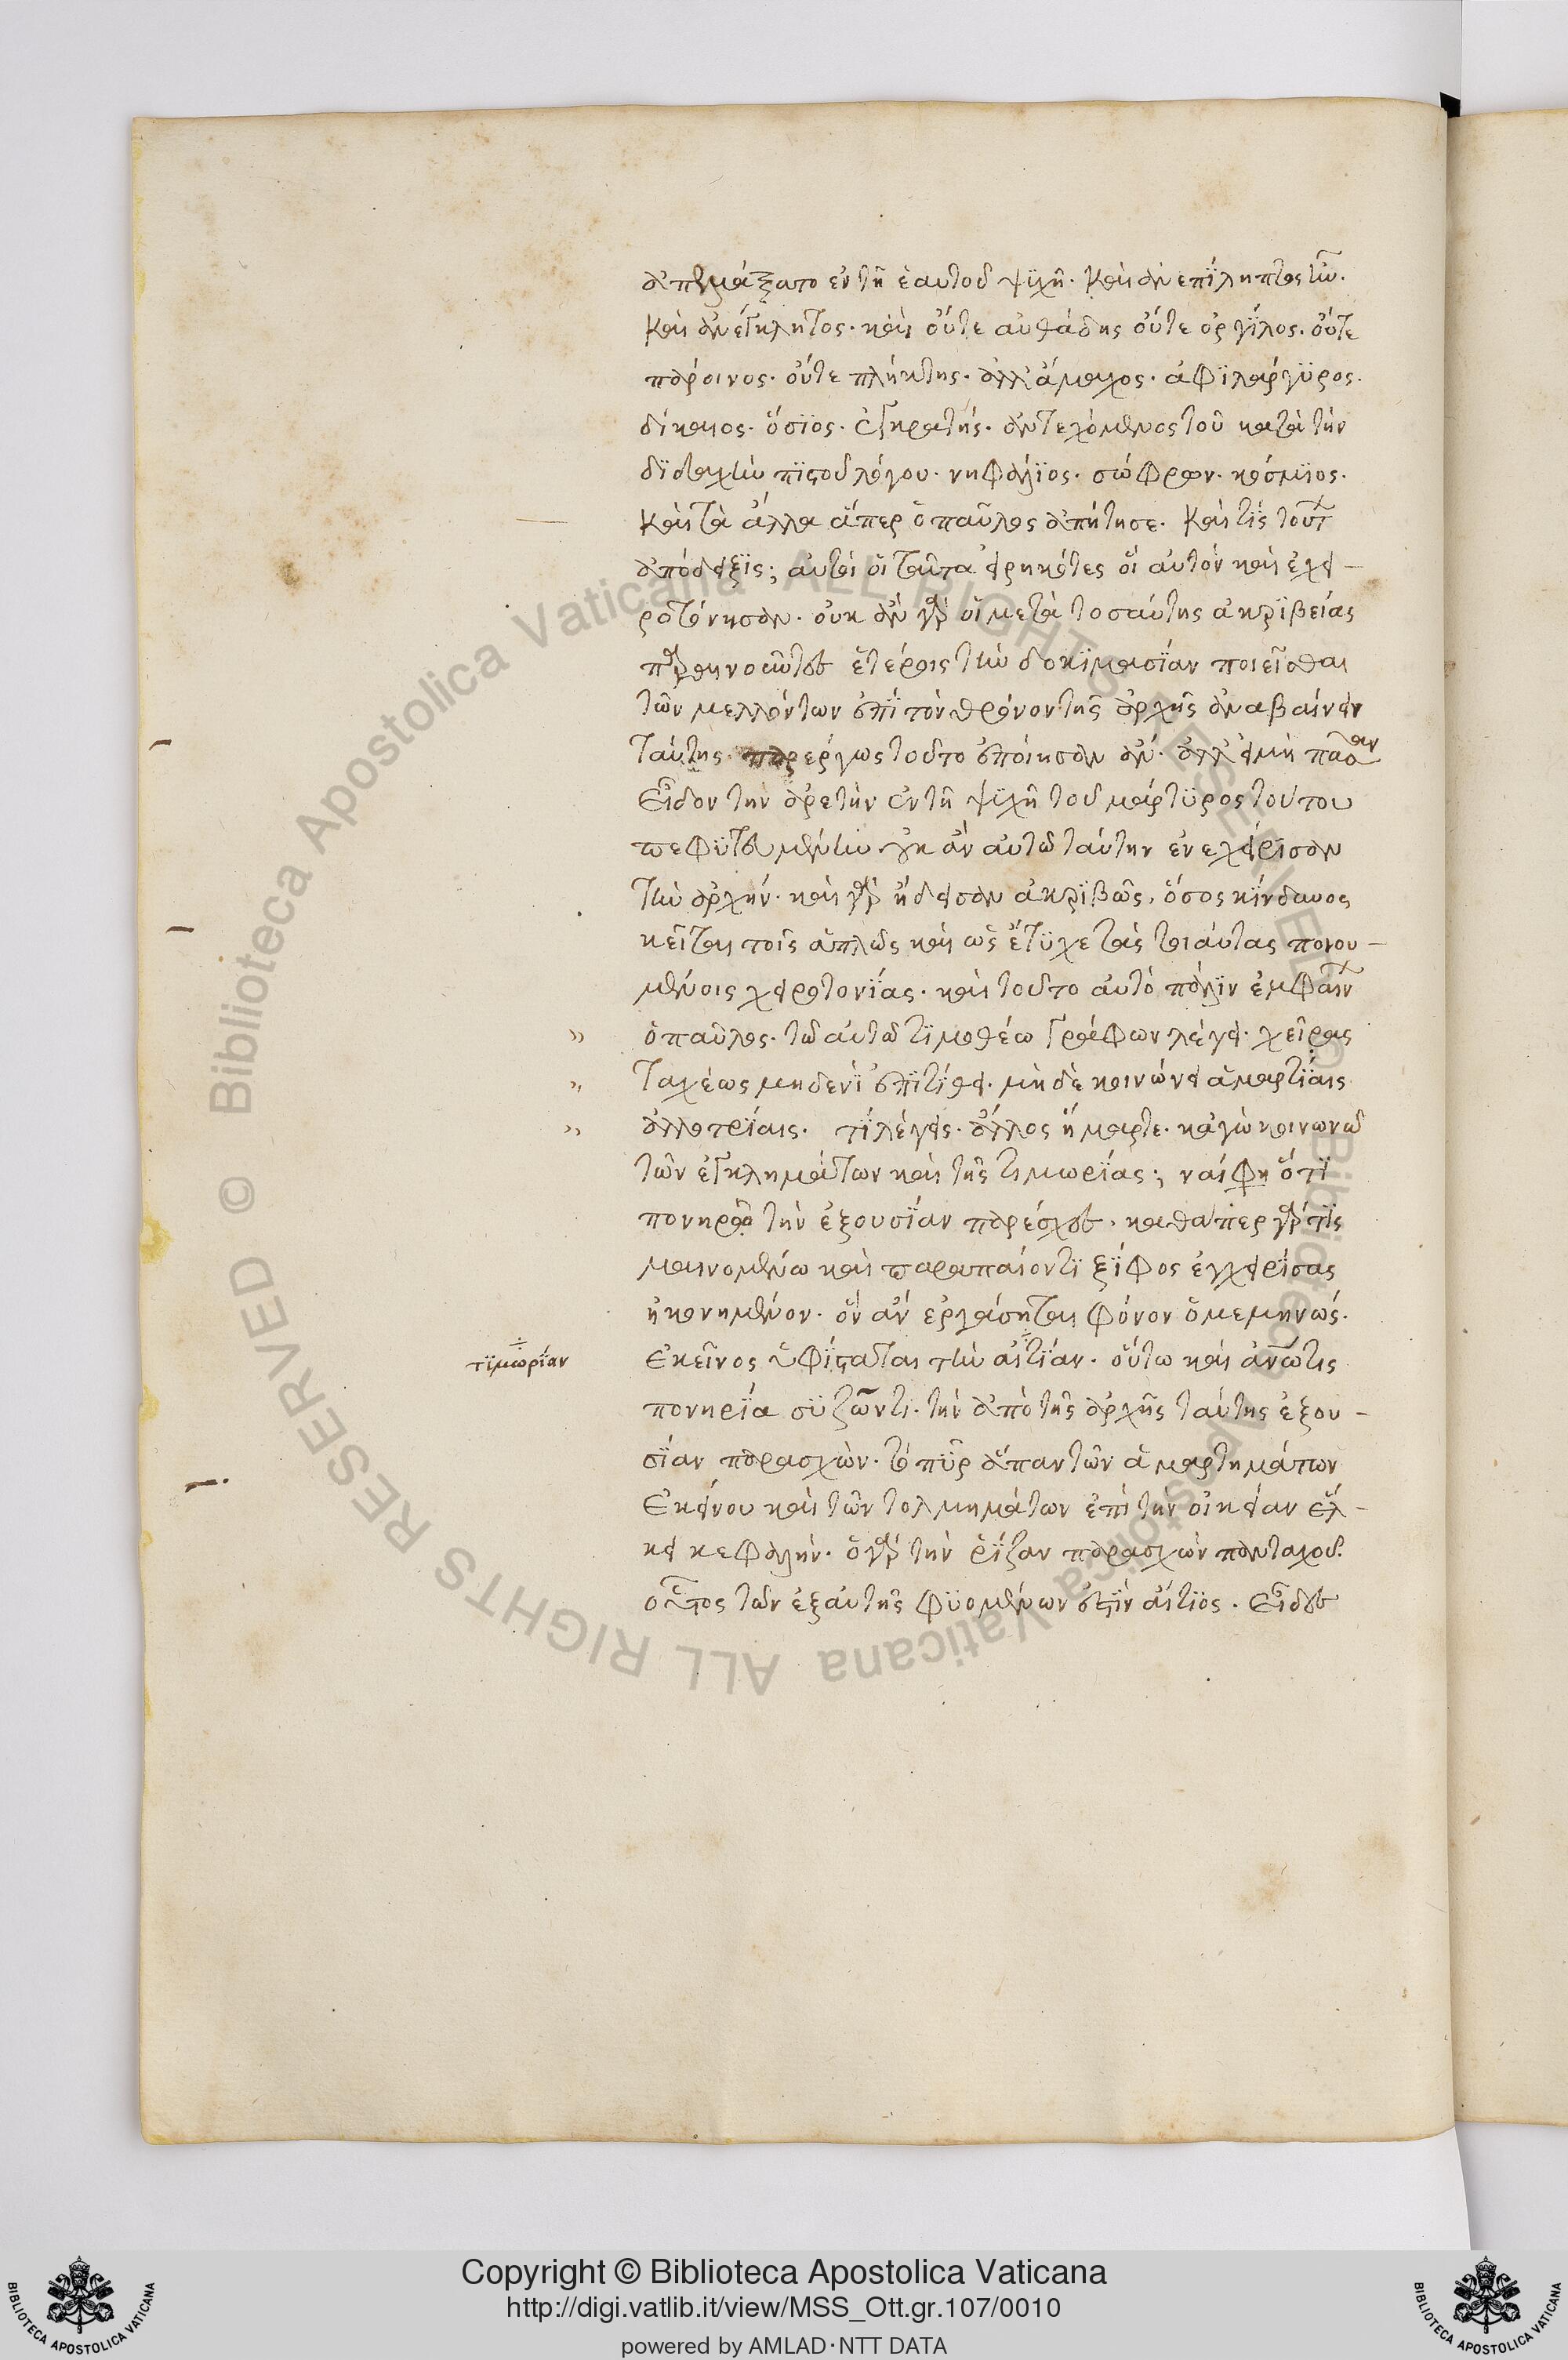 ἀπεμάξατο ἐν τῆ ἑαυτοῦ ψϋχῆ. καὶ ἀνεπίληπτος ἦν.
καὶ ἀνέγκλητος. καὶ οὔτε αὐθάδης οὔτε ὀργΐλος. οὔτε
πάροινος. οὔτε πλήκτης. ἀλλ' ἄμαχος. ἀφϊλάργϋρος.
δίκαιος. ὅσϊος. ἐγκρατής. ἀντεχόμενος τοῦ κατὰ τὴν
δϊδαχὴν πϊστοῦ λόγου. νηφάλϊος. σώφρων. κόσμϊος.
καὶ τὰ ἄλλα ἅπερ ὁ παῦλος ἀπήτησε. καὶ τίς τούτ
ἀπόδειξϊς; αὐτοὶ οἱ ταῦτα εἰρηκότες οἳ αὐτὸν καὶ ἐχει-
ροτόνησαν. οὐκ ἂν γὰρ οἱ μετὰ τοσαύτης ἀκρϊβείας
παραινοῦντες ἑτέροις τὴν δοκϊμασίαν ποιεῖσθαι
τῶν μελλόντων ἐπὶ τὸν θρόνον τῆς ἀρχῆς ἀναβαίνειν
ταύτης παρέργως τοῦτο ἐποίησαν ἄν. ἀλλ' εἰ μὴ πᾶσαν
εἶδον τὴν ἀρετὴν ἐν τῆ ψϋχῆ τοῦ μάρτϋρος τούτου
πεφϋτευμένην οὐκ ἂν αὐτῶ ταύτην ἐνεχείρϊσαν
τὴν ἀρχήν. καὶ γὰρ ἤδεισαν ἀκρϊβῶς, ὅσος κίνδυνος
κεῖται τοῖς ἁπλῶς καὶ ὡς ἔτϋχε τὰς τοιαύτας ποιου-
μένοις χειροτονίας. καὶ τοῦτο αὐτὸ πάλϊν ἐμφαίν
» ὁ παῦλος. τῶ αὐτῶ τϊμοθέω γράφων λέγει. χεῖρας
» ταχέως μηδενὶ ἐπϊτίθει. μὴ δὲ κοινώνει ἁμαρτίαις
» ἀλλοτρίαις. τί λέγεις. ἄλλος ἥμαρτε. κἀγὼ κοινωνῶ
τῶν ἐγκλημάτων καὶ τῆς τιμωρίας; ναί φη ὅτϊ
πονηρῶ τὴν ἐξουσίαν παρέσχες. καθάπερ γάρ τϊς
μαινομένω καὶ παραπαίοντϊ ξίφος ἐγχειρίσας
ἠκονημένον. ὃν ἂν ἐργάσηται φόνον ὁ μεμηνώς.
τϊμωρίαν
ἐκεῖνος ὑφΐσταται τὴν αἰτίαν. οὕτω καὶ ἀν̅ω̅ τις
πονηρία συζῶντι. τὴν ἀπὸ τῆς ἀρχῆς ταύτης ἐξου-
σίαν παρασχὼν. τὸ πῦρ ἁπάντων ἁμαρτημάτων
ἐκείνου καὶ τῶν τολμημάτων ἐπὶ τὴν οἰκείαν ἕλ-
κει κεφαλήν. ὁ γὰρ τὴν ῥίζαν παρασχὼν πανταχοῦ.
οὗτος τῶν ἐξ αὐτῆς φϋομένων ἐστὶν αἴτϊος. εἶδες
Copyright © Biblioteca Apostolica Vaticana
http://digi.vatlib.it/view/MSS_Ott.gr.107/0010
powered by AMLAD·NTT DATA